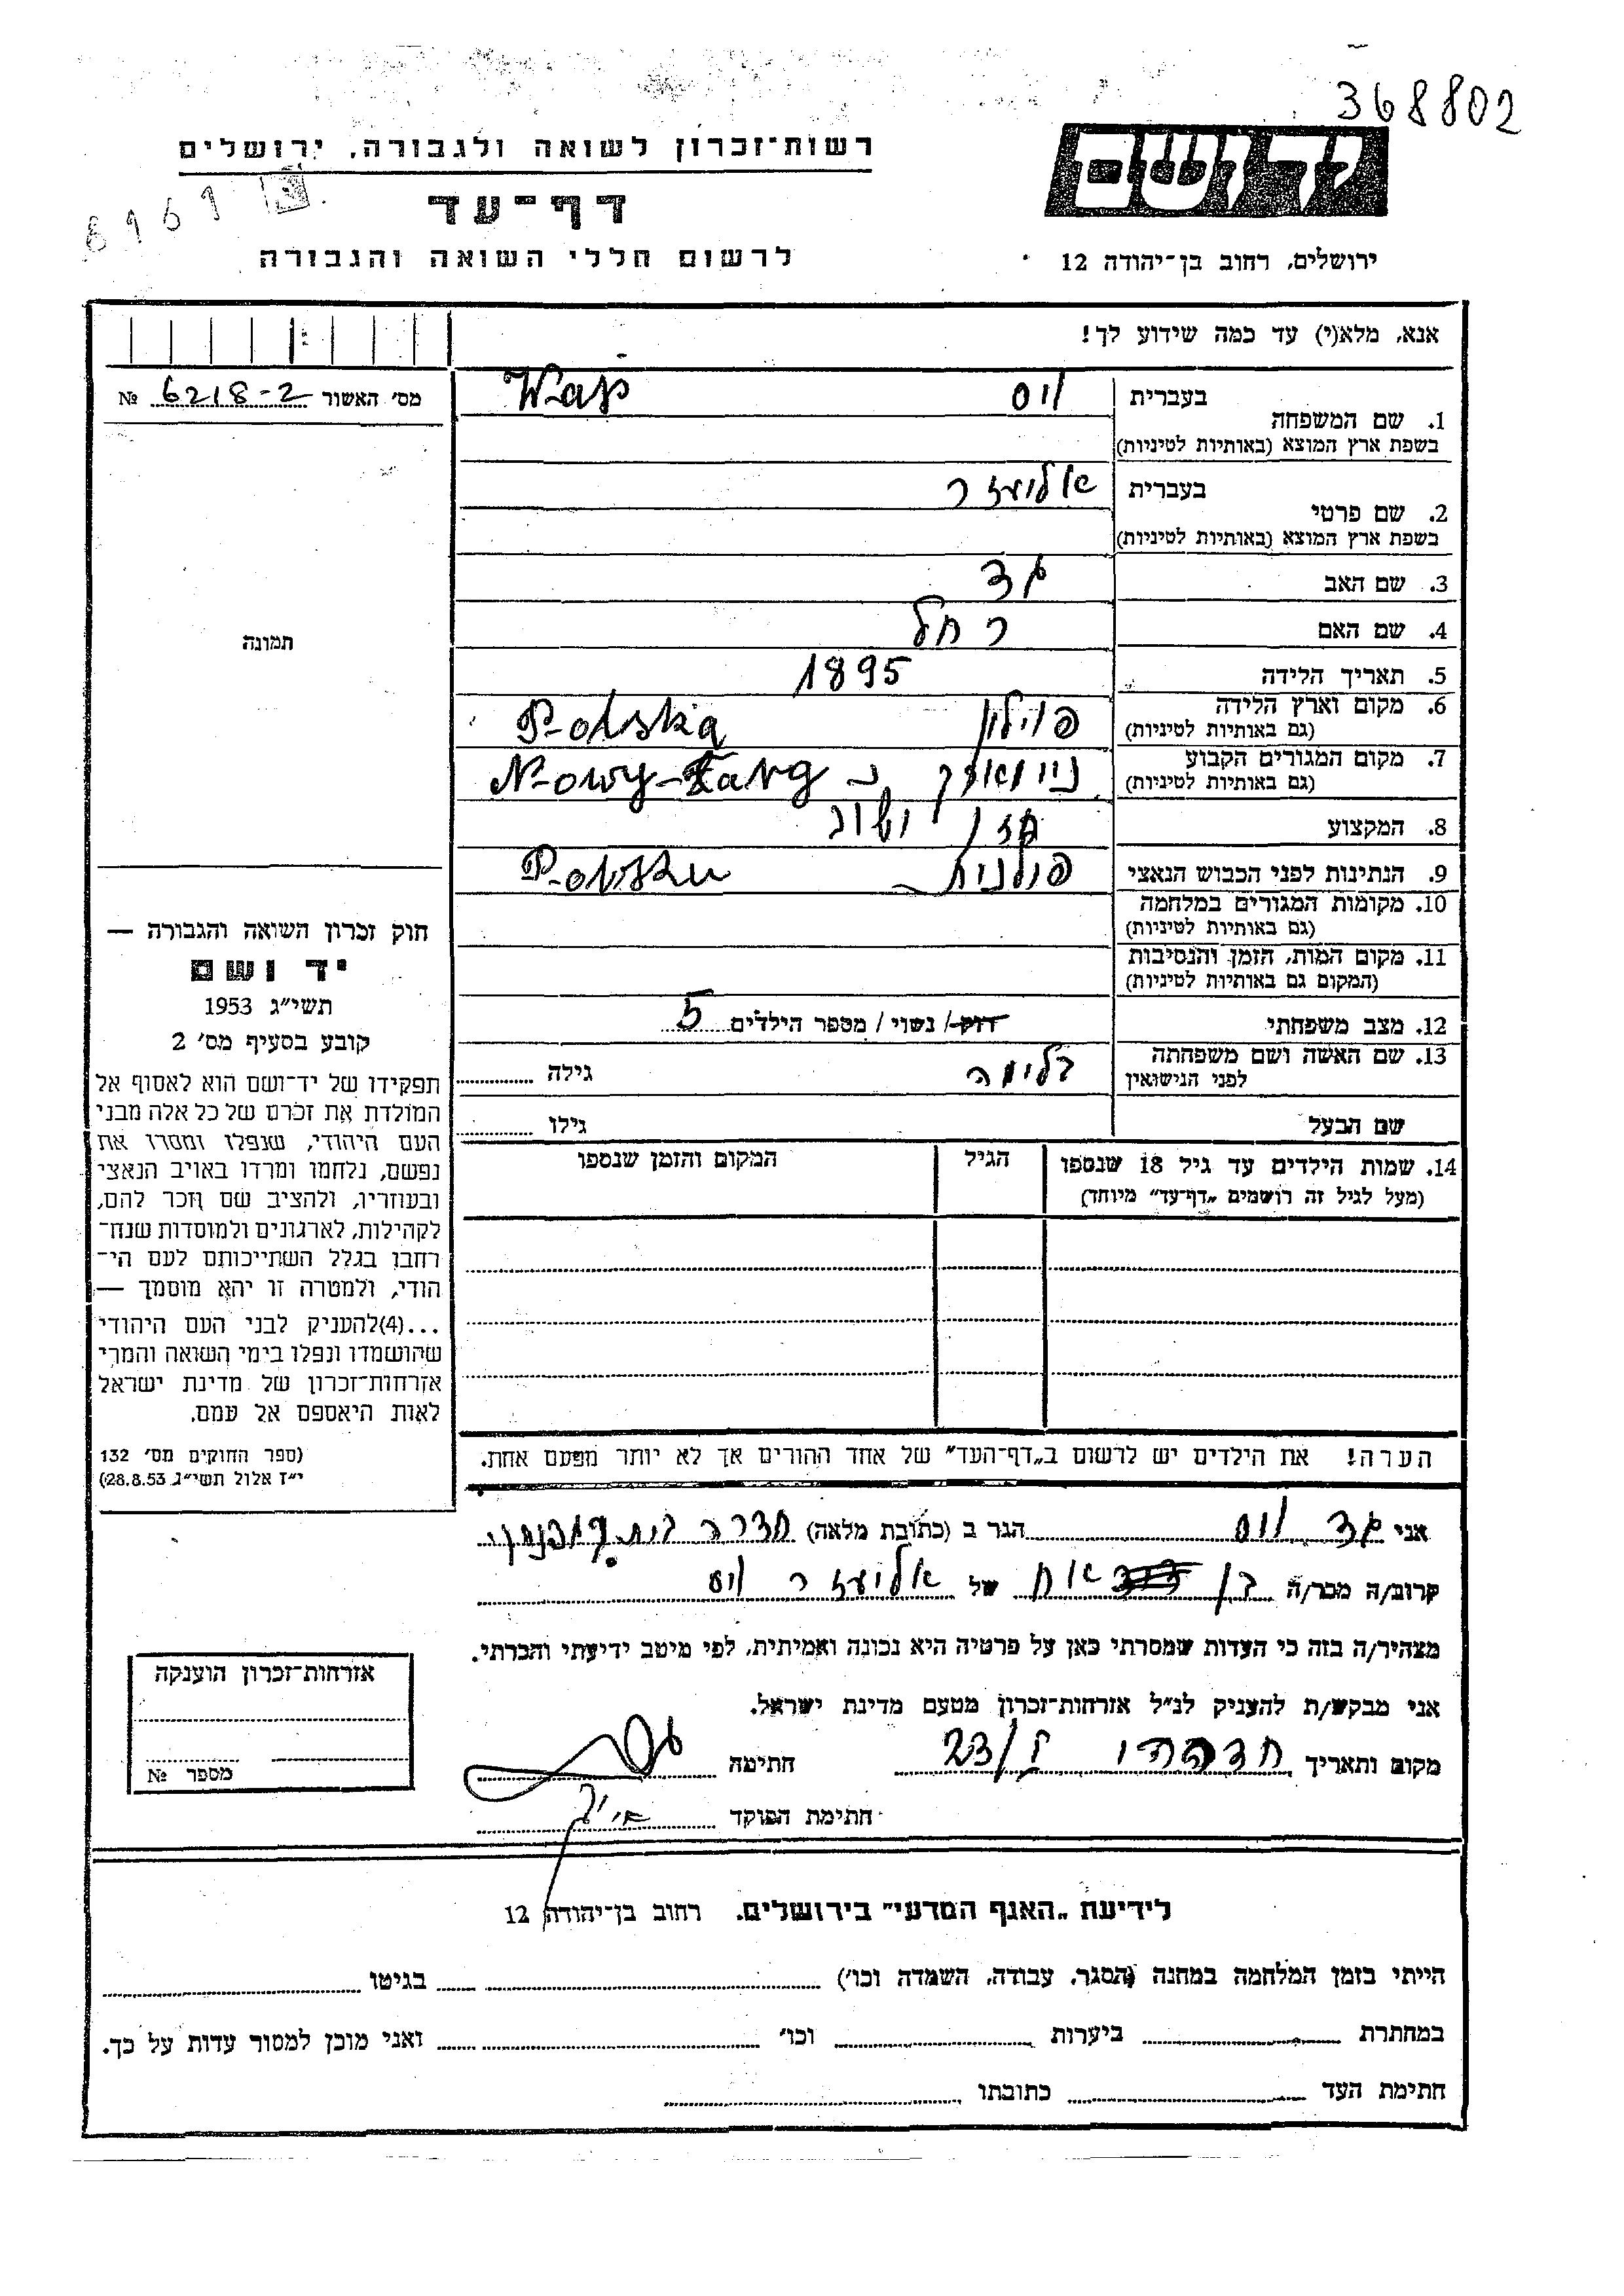 368802
יד ושם
רשות־זכרון לשואה ולגבורה, ירושלים
דף־עד
לרשום חללי השואה והגבורה
ירושלים, רחוב בן־יהודה 12
אנא, מלא(י) עד כמה שידוע לך!
מס' האשור 6218-2 №
1. שם המשפחה
בעברית
ויס
בשפת ארץ המוצא (באותיות לטיניות)
2. שם פרטי
בעברית אליעזר
בשפת ארץ המוצא (באותיות לטיניות)
3. שם האב גד
4. שם האם רחל
5. תאריך הלידה 1895
6. מקום וארץ הלידה פוילון Polska
(גם באותיות לטיניות)
7. מקום המגורים הקבוע
(גם באותיות לטיניות)
8. המקצוע חזן
9. הנתינות לפני הכבוש הנאצי פולנית
10. מקומות המגורים במלחמה
(גם באותיות לטיניות)
11. מקום המות, הזמן והנסיבות
(המקום גם באותיות לטיניות)
12. מצב משפחתי רוק/ נשוי / מספר הילדים 5
13. שם האשה ושם משפחתה
לפני הנישואין
גילה
שם הבעל גילו
14. שמות הילדים עד גיל 18 שנספו
(מעל לגיל זה רושמים „דף־עד" מיוחד)
הגיל
המקום והזמן שנספו
הערה! את הילדים יש לרשום ב„דף־העד" של אחד ההורים אך לא יותר מפעם אחת.
תמונה
חוק זכרון השואה והגבורה —
יד ושם
תשי"ג 1953
קובע בסעיף מס' 2
תפקידו של יד־ושם הוא לאסוף אל
המולדת את זכרם של כל אלה מבני
העם היהודי, שנפלו ומסרו את
נפשם, נלחמו ומרדו באויב הנאצי
ובעוזריו, ולהציב שם וזכר להם,
לקהילות, לארגונים ולמוסדות שנח־
רחבו בגלל השתייכותם לעם הי־
הודי, ולמטרה זו יהא מוסמך —
...(4)להעניק לבני העם היהודי
שהושמדו ונפלו בימי השואה והמרי
אזרחות־זכרון של מדינת ישראל
לאות היאספם אל עמם.
(ספר החוקים מס' 132
י"ז אלול תשי"ג 28.8.53)
אני גד ויס הגר ב (כתובת מלאה) חדרה
קרוב/ה מכר/ה בן אח של אליעזר ויס
מצהיר/ה בזה כי העדות שמסרתי כאן על פרטיה היא נכונה ואמיתית, לפי מיטב ידיעתי והכרתי.
אני מבקש/ת להעניק לנ"ל אזרחות־זכרון מטעם מדינת ישראל.
מקום ותאריך חתימה
חתימת הפוקד
אזרחות־זכרון הוענקה
מספר №
לידיעת „האגף המדעי" בירושלים. רחוב בן־יהודה 12
הייתי בזמן המלחמה במחנה (הסגר, עבודה, השמדה וכו') בגיטו
במחתרת ביערות וכו' ואני מוכן למסור עדות על כך.
חתימת העד כתובתו